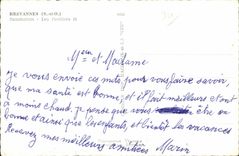 BREVANNES (S.-et-O.)
Sanatorium - Les
Mr et Madame
Je vous envoie ces mots pour vous faire savoir
que ma santé est bonne, et il fait meilleure et ont
a moins chaud. je pense que vous être en
bonne et ainsi que les enfants, et bientôt les vacances
Recevez mes meilleurs amitiées